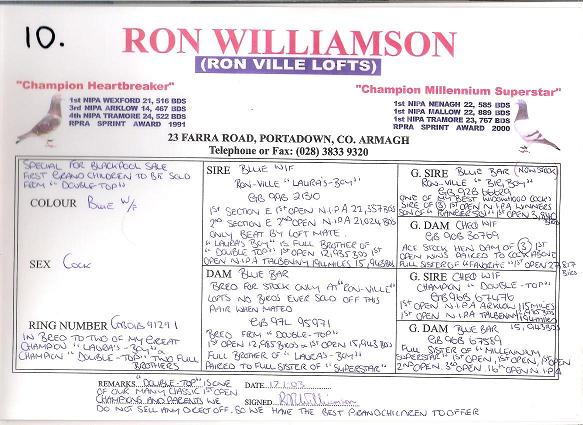 10.
RON WILLIAMSON
(RON VILLE LOFTS)
"Champion Heartbreaker"
1st NIPA WEXFORD 21, 516 BDS
3rd NIPA ARKLOW 14, 467 BDS
4th NIPA TRAMORE 24, 522 BDS
RPRA SPRINT AWARD 1991
"Champion Millennium Superstar"
1st NIPA NENAGH 22, 585 BDS
1st NIPA MALLOW 22, 889 BDS
1st NIPA TRAMORE 23, 767 BDS
RPRA SPRINT AWARD 2000
23 FARRA ROAD, PORTADOWN, CO. ARMAGH
Telephone or Fax: (028) 3833 9320
SPECIAL FOR BLACKPOOL SALE
FIRST GRAND CHILDREN TO BE SOLD
FROM "DOUBLE-TOP"
COLOUR BLUE W/F
SEX COCK
RING NUMBER GB01S 91291
IN BRED TO TWO OF MY GREAT
CHAMPION "LAURA'S-BOY" &
CHAMPION "DOUBLE-TOP" TWO FULL
BROTHERS
SIRE BLUE W/F
RON-VILLE "LAURA'S-BOY"
GB 99S 21310
1ST SECTION E 1ST OPEN N.I.P.A 22,357 BDS
2ND SECTION E 2ND OPEN N.I.P.A 21,024 BDS
ONLY BEAT BY LOFT MATE.
"LAURA'S-BOY" IS FULL BROTHER OF
"DOUBLE TOP" 1ST OPEN 12,985 BDS 1ST
OPEN N.I.P.A TALBENNY 194 MILES 15,943 BDS
DAM BLUE BAR
BRED FOR STOCK ONLY AT "RON-VILLE"
LOFTS NO BIRDS EVER SOLD OFF THIS
PAIR WHEN MATED
GB 97L 95971
BRED FROM "DOUBLE-TOP"
1ST OPEN 12,985 BDS & 1ST OPEN 15,943 BDS
FULL BROTHER OF "LAURA'S-BOY"
PAIRED TO FULL SISTER OF "SUPERSTAR"
G. SIRE BLUE BAR (NOW STOCK)
RON-VILLE "BIG BOY"
GB 92B 66629
ONE OF MY BEST WIDOWHOOD COCKS
SIRE OF (3) 1ST OPEN N.I.P.A WINNERS
G. DAM CHEQ W/F
GB 90S 30769
ACE STOCK HEN DAM OF (3) 1ST
OPEN WINS PAIRED TO COCK ABOVE
G. SIRE CHEQ W/F
CHAMPION "DOUBLE-TOP"
GB 96B 67476
1ST OPEN N.I.P.A ARKLOW 115 MILES
1ST OPEN N.I.P.A TALBENNY 194 MILES
15,943 BDS
G. DAM BLUE BAR
GB 96B 67539
FULL SISTER OF "MILLENNIUM
SUPERSTAR" 1ST OPEN, 1ST OPEN, 1ST OPEN
2ND OPEN 3RD OPEN 16TH OPEN N.I.P.A
REMARKS "DOUBLE-TOP" IS ONE
OF OUR MANY CLASSIC 1ST OPEN
CHAMPIONS AND PARENTS WE
DO NOT SELL ANY DIRECT OFF. SO WE HAVE THE BEST GRANDCHILDREN TO OFFER
DATE 17.1.03
SIGNED